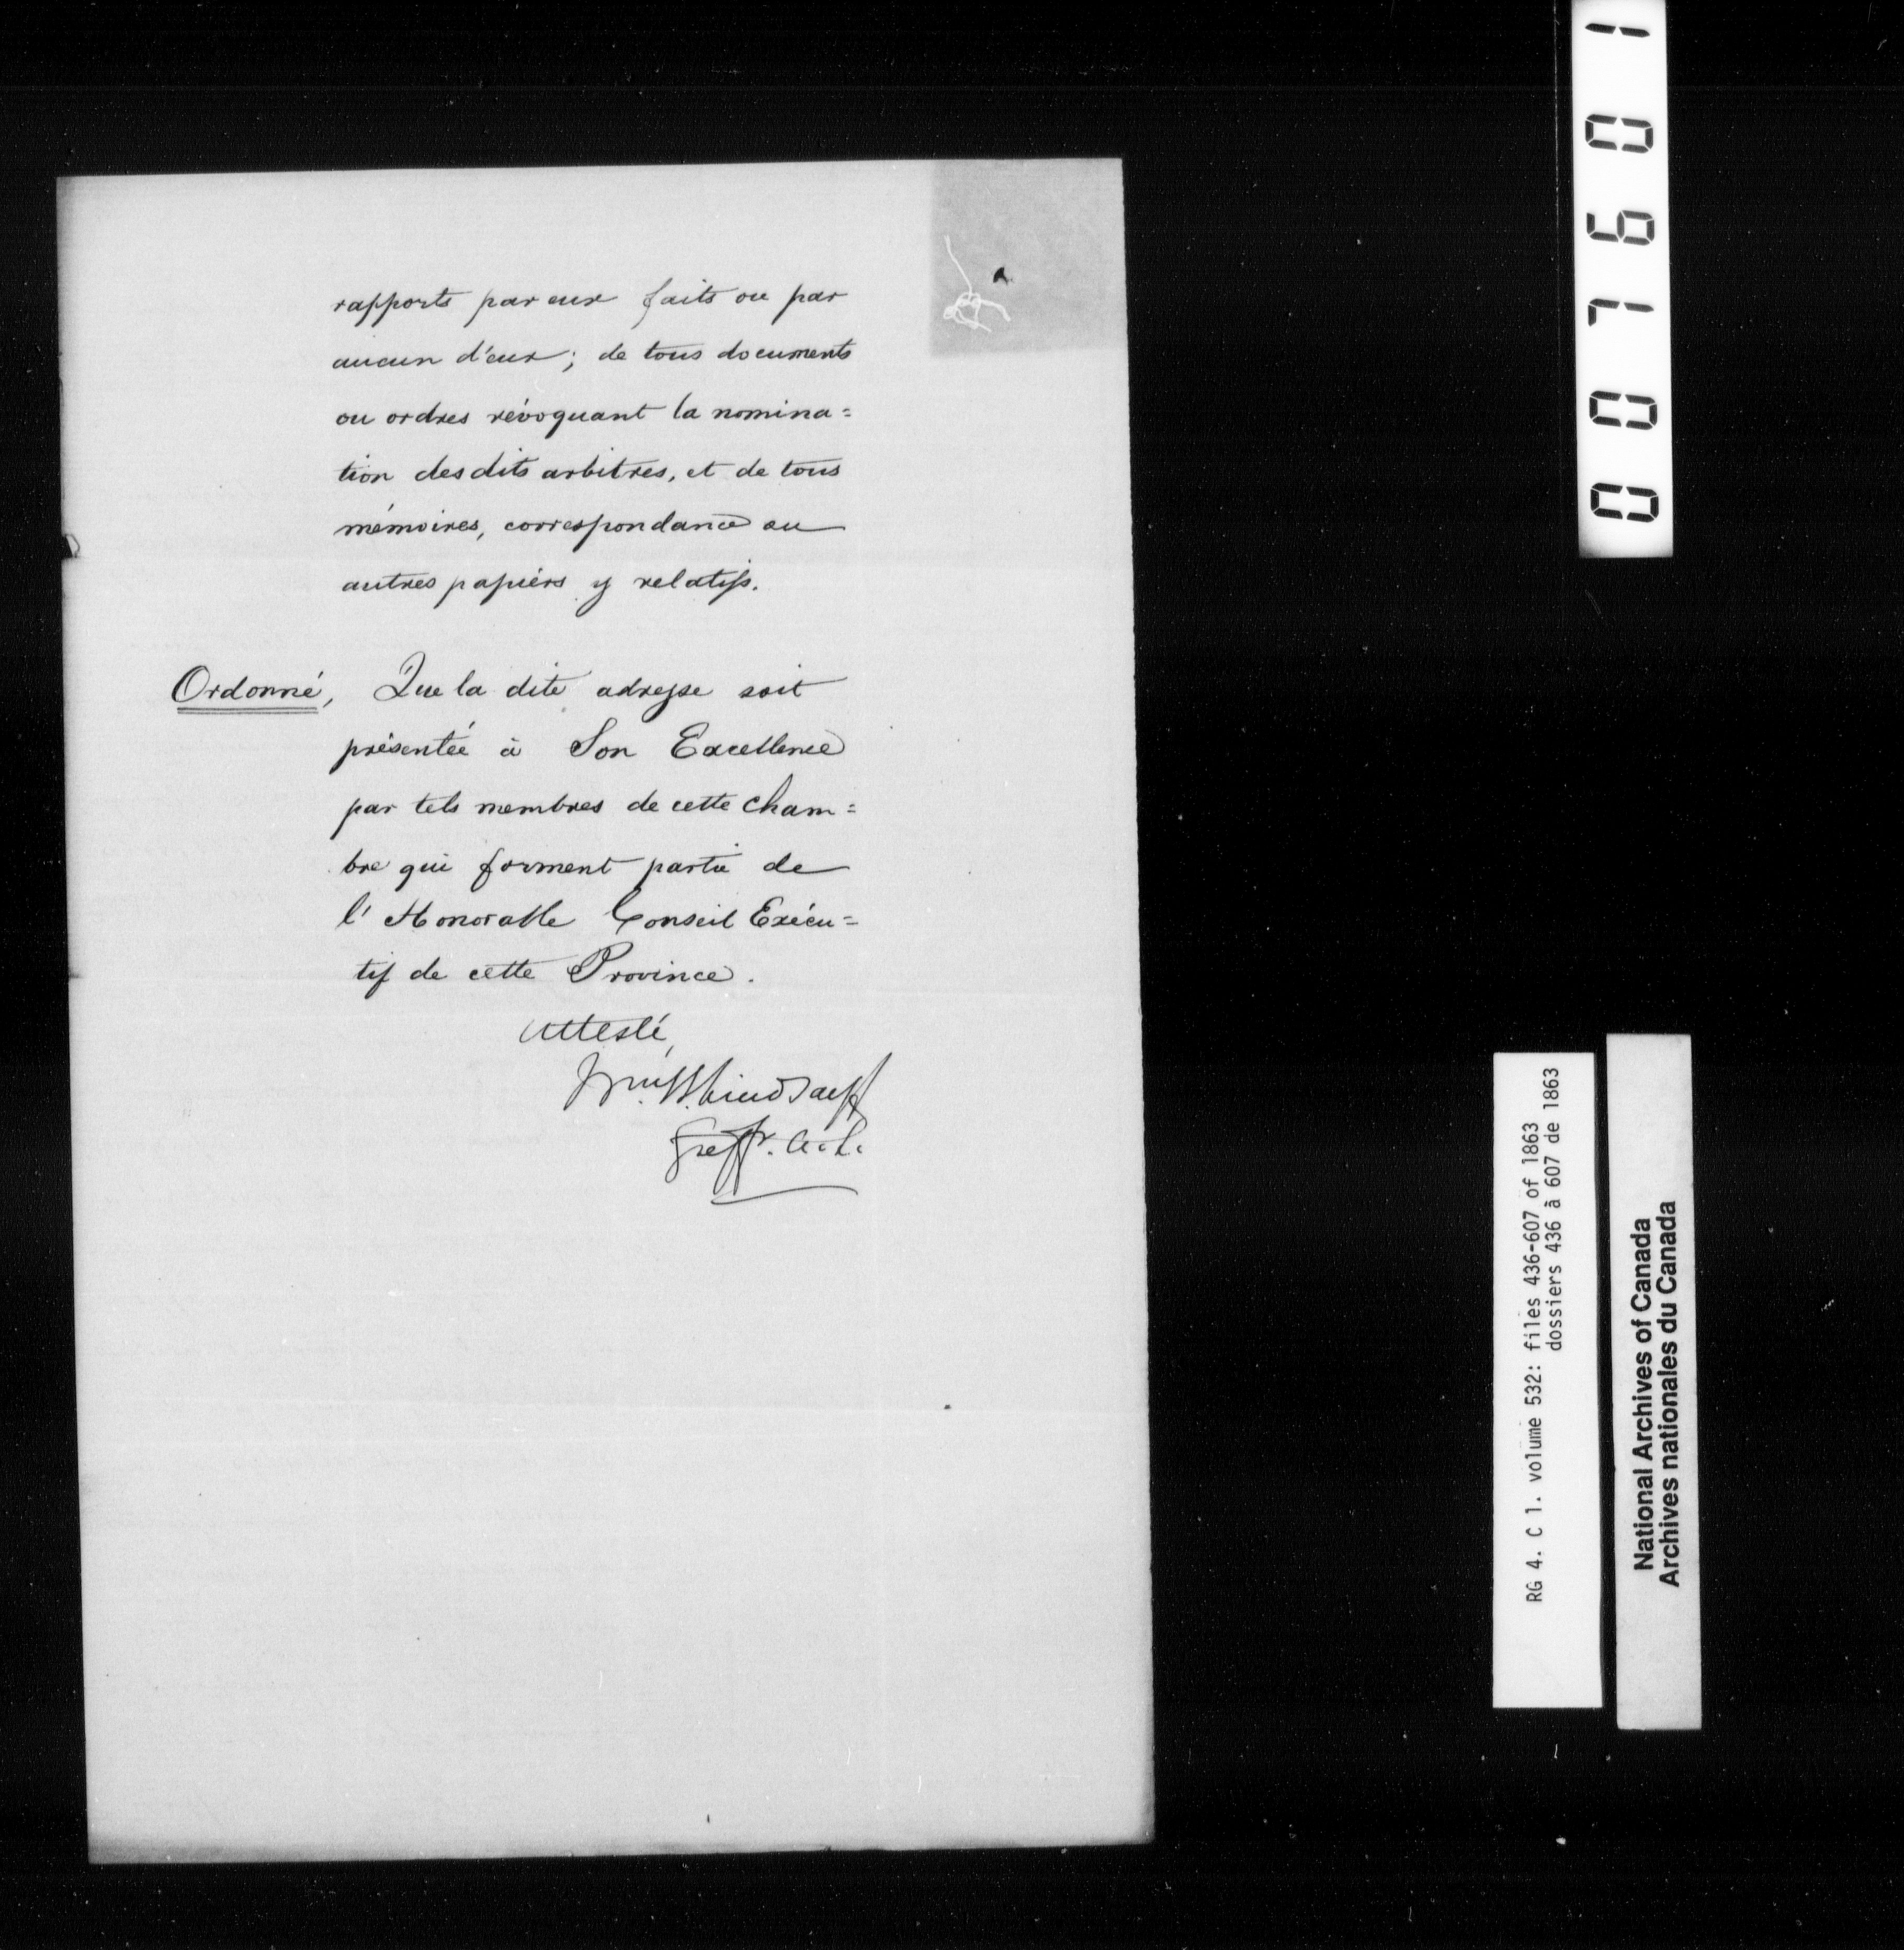 rapports par eux faits ou par
aucun d'eux; de tous documents
ou ordres révoquant la nomina=
tion des dits arbitres, et de tous
mémoires, correspondance ou
autres papiers y relatifs.
Ordonné, Que la dite adresse soit
présentée à Son Excellence
par tels membres de cette cham=
bre qui forment partie de
l'Honorable Conseil Exécu=
tif de cette Province.
Attesté,
Wm. B. Lindsay
Greffr. A. L.
007601
RG 4. C 1. volume 532: files 436-607 of 1863
dossiers 436 à 607 de 1863
National Archives of Canada
Archives nationales du Canada